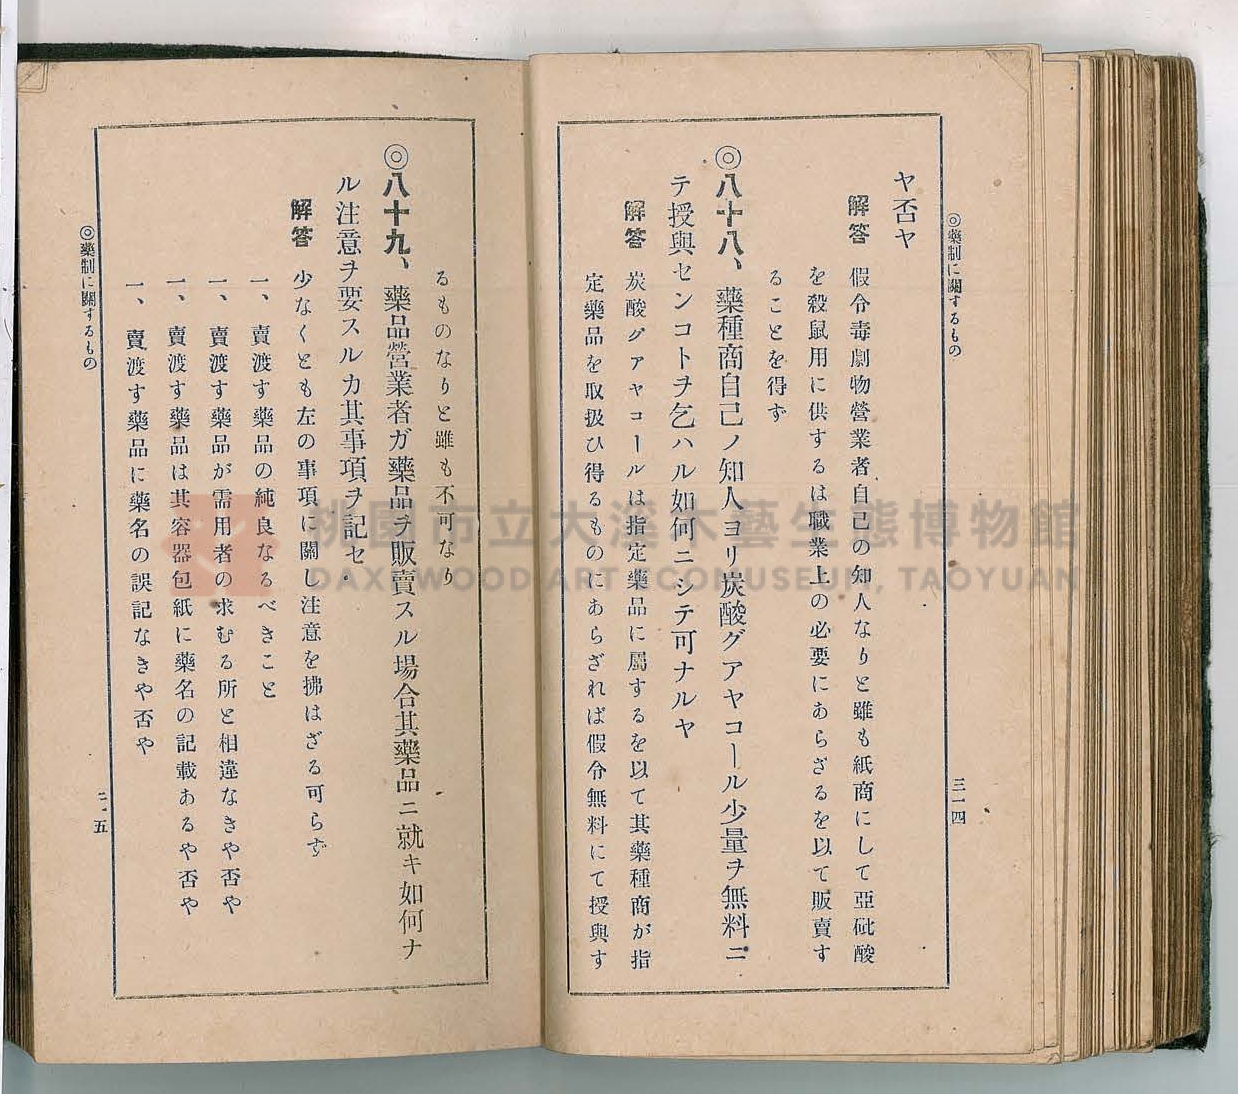 ◎藥制に關するもの
三一四
ヤ否ヤ
解答 假令毒劇物營業者自己の知人なりと雖も紙商にして亞砒酸
を殺鼠用に供するは職業上の必要にあらざるを以て販賣す
ることを得ず
◎八十八、藥種商自己ノ知人ヨリ炭酸グアヤコール少量ヲ無料ニ
テ授與センコトヲ乞ハル如何ニシテ可ナルヤ
解答 炭酸グアヤコールは指定藥品に屬するを以て其藥種商が指
定藥品を取扱ひ得るものにあらざれば假令無料にて授與す
るものなりと雖も不可なり
◎八十九、藥品營業者ガ藥品ヲ販賣スル場合其藥品ニ就キ如何ナ
ル注意ヲ要スルカ其事項ヲ記セ
解答 少なくとも左の事項に關し注意を拂はざる可らず
一、賣渡す藥品の純良なるべきこと
一、賣渡す藥品が需用者の求むる所と相違なきや否や
一、賣渡す藥品は其容器包紙に藥名の記載あるや否や
一、賣渡す藥品に藥名の誤記なきや否や
◎藥制に關するもの
三一五
桃園市立大溪木藝生態博物館
DAXI WOOD ART ECOMUSEUM, TAOYUAN